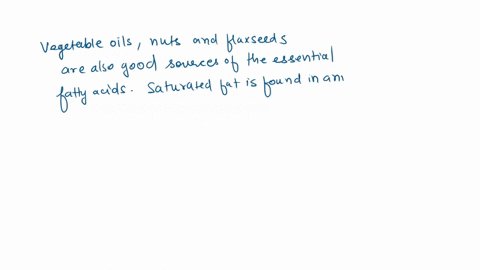 Vegetable oils, nuts and flaxseeds
are also good sources of the essential
fatty acids. Saturated fat is found in ani